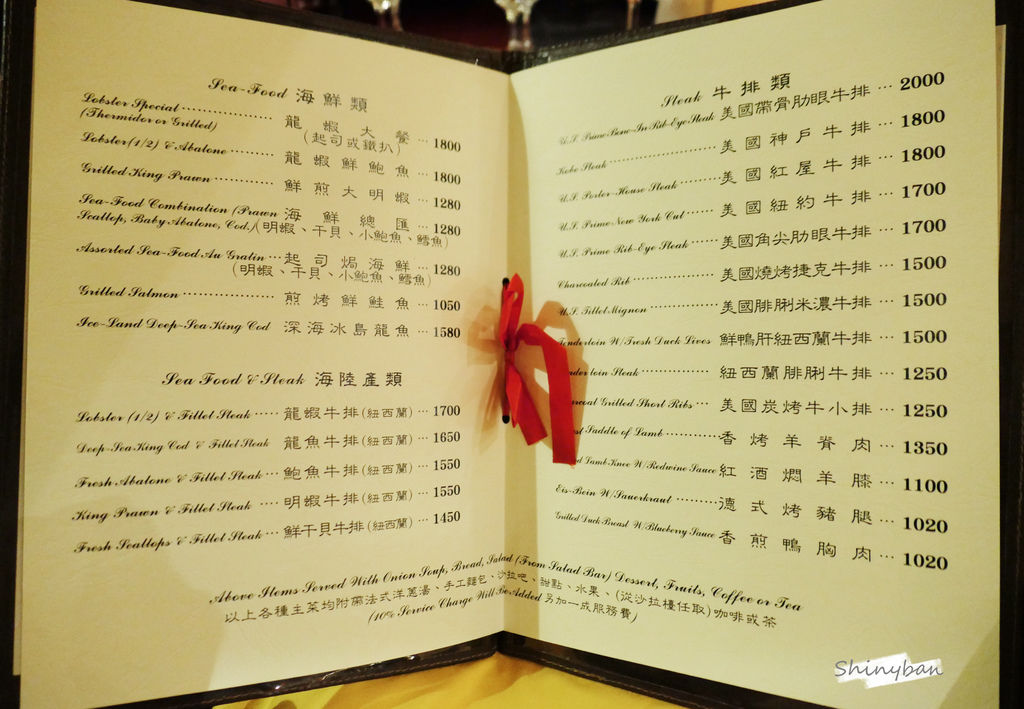 Sea-Food 海鮮類
Lobster Special ·············· 龍蝦大餐 ··· 1800
(Thermidor or Grilled) (起司或鐵扒)
Lobster(1/2) & Abalone ·········· 龍蝦鮮鮑魚 ··· 1800
Grilled King Prawn ············· 鮮煎大明蝦 ··· 1280
Sea-Food Combination (Prawn 海鮮總匯 ··· 1280
Scallop, Baby Abalone, Cod.)(明蝦、干貝、小鮑魚、鱈魚)
Assorted Sea-Food Au Gratin ··· 起司焗海鮮 ··· 1280
(明蝦、干貝、小鮑魚、鱈魚)
Grilled Salmon ·················· 煎烤鮮鮭魚 ··· 1050
Ice-Land Deep-Sea King Cod 深海冰島龍魚 ··· 1580
Sea Food & Steak 海陸產類
Lobster (1/2) & Fillet Steak ····· 龍蝦牛排(紐西蘭) ··· 1700
Deep-Sea King Cod & Fillet Steak 龍魚牛排(紐西蘭) ··· 1650
Fresh Abalone & Fillet Steak ··· 鮑魚牛排(紐西蘭) ··· 1550
King Prawn & Fillet Steak ···· 明蝦牛排(紐西蘭) ··· 1550
Fresh Scallops & Fillet Steak ··· 鮮干貝牛排(紐西蘭) ··· 1450
Steak 牛排類
U.S. Prime Bone-In Rib-Eye Steak 美國帶骨肋眼牛排 ··· 2000
Kobe Steak ······················ 美國神戶牛排 ··· 1800
U.S. Porter-House Steak ········ 美國紅屋牛排 ··· 1800
U.S. Prime New York Cut ······ 美國紐約牛排 ··· 1700
U.S. Prime Rib-Eye Steak ······ 美國角尖肋眼牛排 ··· 1700
Charcoaled Rib ················· 美國燒烤捷克牛排 ··· 1500
U.S. Fillet Mignon ············· 美國腓脷米濃牛排 ··· 1500
Tenderloin W/Fresh Duck Lives 鮮鴨肝紐西蘭牛排 ··· 1500
Tenderloin Steak ··············· 紐西蘭腓脷牛排 ··· 1250
Grilled Short Ribs ··· 美國炭烤牛小排 ··· 1250
Saddle of Lamb ··········· 香烤羊脊肉 ··· 1350
Lamb Knee W/Redwine Sauce 紅酒燜羊膝 ··· 1100
Eis-Bein W/Sauerkraut ········· 德式烤豬腿 ··· 1020
Grilled Duck Breast W/Blueberry Sauce 香煎鴨胸肉 ··· 1020
Above Items Served With Onion Soup, Bread, Salad (From Salad Bar) Dessert, Fruits, Coffee or Tea
以上各種主菜均附帶法式洋蔥湯、手工麵包、沙拉吧、甜點、水果、(從沙拉檯任取)咖啡或茶
(10% Service Charge Will Be Added 另加一成服務費)
Shinyban